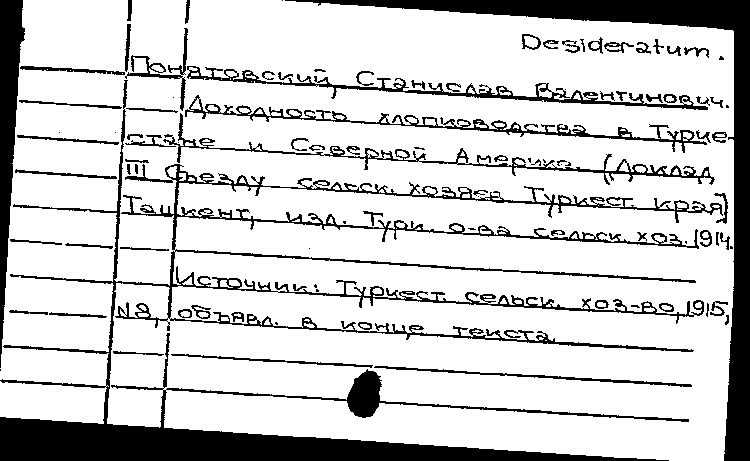 Desideratum.
Понятовский, Станислав Валентинович.
Доходность хлопководства в Турке-
стане и Северной Америке. (Доклад
III Съезду сельск. хозяев Туркест. края)
Ташкент, изд. Турк. о-ва сельск. хоз. 1914.
Источник: Туркест. сельск. хоз-во, 1915,
№8, объявл. в конце текста.